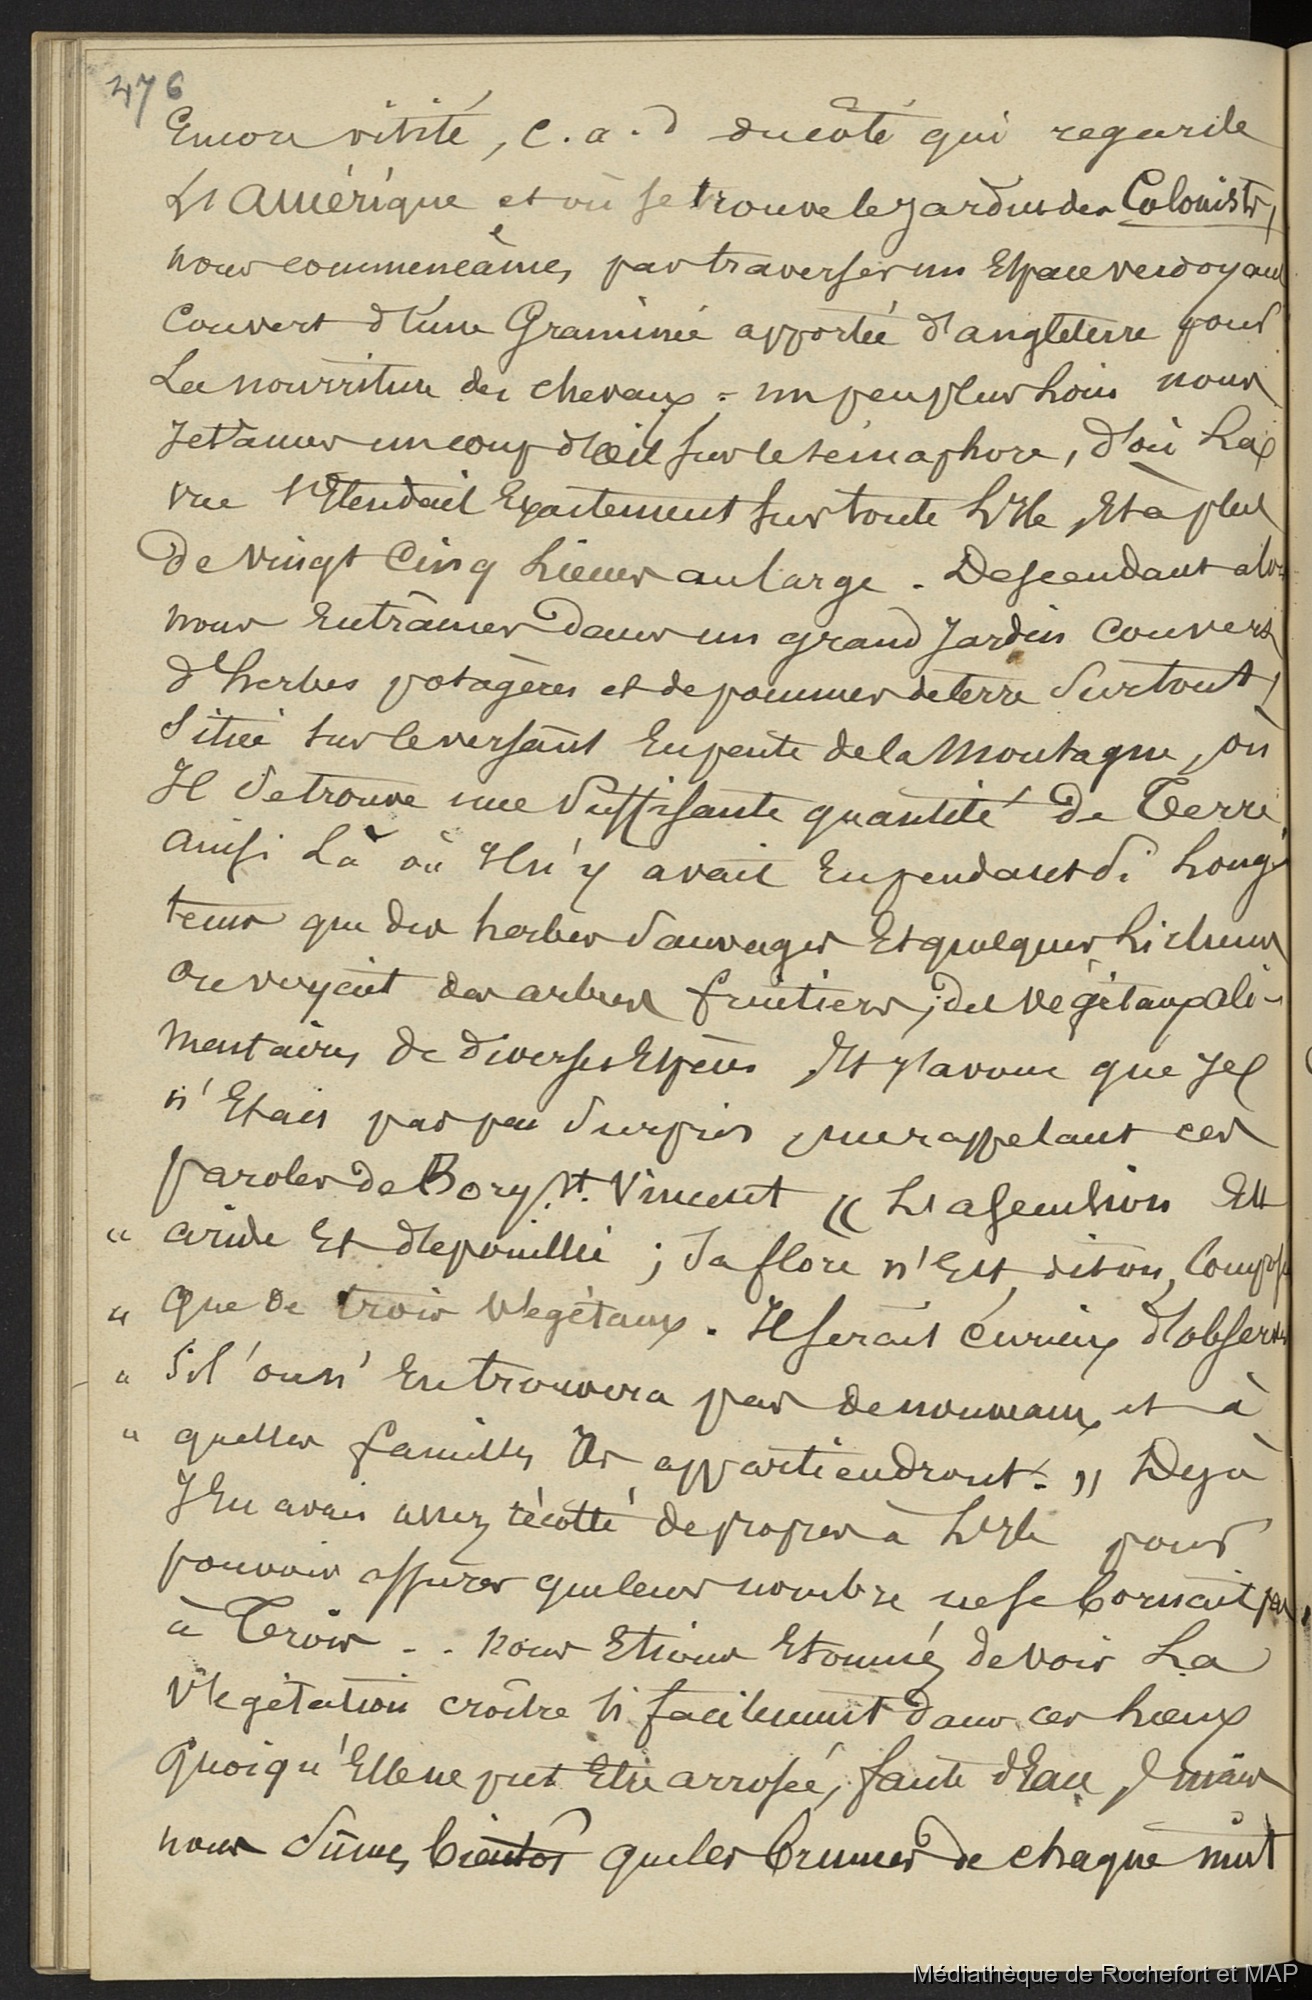 476
Encore visité, c. a. d du côté qui regarde
L'Amérique et où se trouve le jardin des Colonists,
nous commençâmes par traverser un Espace verdoyant
couvert d'une Graminée apportée d'angleterre pour
La nourriture des chevaux = un peu plus Loin nous
Jetâmes un coup d'Œil sur le sémaphore, d'où La
vue s'Etendait Exactement sur toute L'Ile, Et à plus
De vingt Cinq Lieues au large. Descendant alors
nous Entrâmes Dans un grand Jardin couvert
d'herbes potagères et de pommes de terre Surtout,
Situé sur le versant En pente de la Montagne, où
Il Se trouve une Suffisante quantité De Terre,
ainsi Là où Il n'y avait Eu pendant Si Long-
tems que des herbes Sauvages Et quelques Lichens
on voyait des arbres fruitiers, des Végétaux ali-
mentaires de diverses Espèces, Et J'avoue que Je
n'Etais pas peu Surpris, me rappelant ces
paroles de Bory St. Vincent « L'ascension Est
" aride Et dépouillée ; Sa flore n'Est, dit on, Composée
" Que de trois Végétaux. Il serait Curieux d'observer
" Si l'on n'En trouvera pas de nouveaux et à
" quelles familles Ils appartiendront. » Déjà
J'En avais assez récolté de propres à L'Ile pour
pouvoir assurer que leur nombre ne se bornait pas
à Trois .. Nous Etions Etonnés de voir La
Végétation croître Si facilement dans ces Lieux
Quoiqu'Elle ne put Etre arrosée, faute d'Eau, mais
nous Sûmes bientôt que les brumes de chaque nuit
Médiathèque de Rochefort et MAP